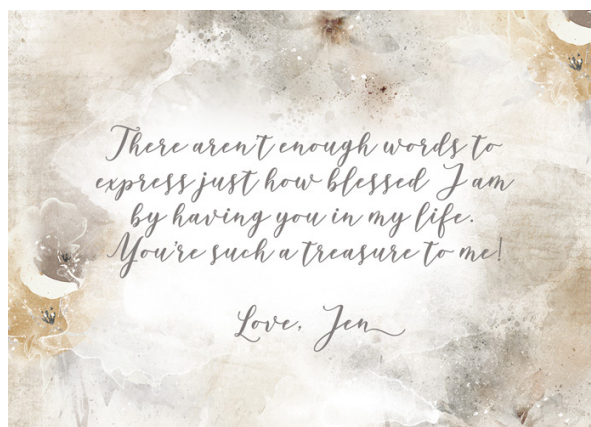 There aren't enough words to
express just how blessed I am
by having you in my life.
You're such a treasure to me!
Love, Jen